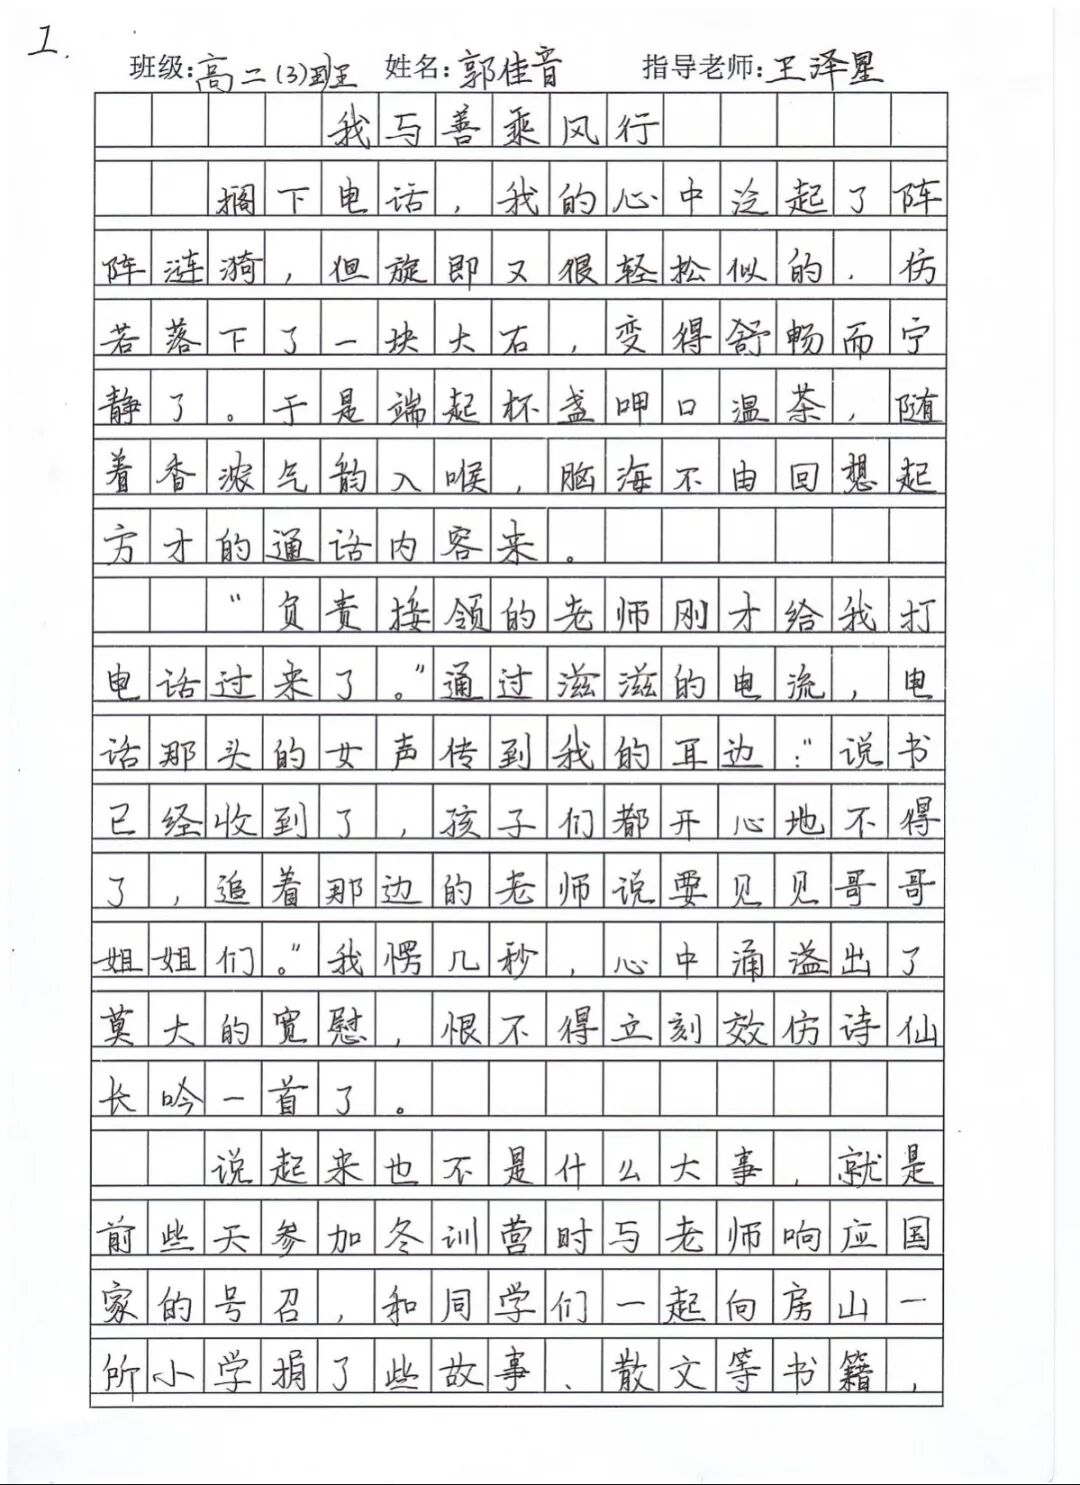 1.
班级:高二(3)班 姓名:郭佳音 指导老师:王泽星
我与善乘风行
搁下电话,我的心中泛起了阵
阵涟漪,但旋即又很轻松似的.仿
若落下了一块大石,变得舒畅而宁
静了。于是端起杯盏呷口温茶,随
着香浓气韵入喉,脑海不由回想起
方才的通话内容来。
“负责接领的老师刚才给我打
电话过来了。”通过滋滋的电流,电
话那头的女声传到我的耳边:“说书
已经收到了,孩子们都开心地不得
了,追着那边的老师说要见见哥哥
姐姐们。”我愣几秒,心中涌溢出了
莫大的宽慰,恨不得立刻效仿诗仙
长吟一首了。
说起来也不是什么大事,就是
前些天参加冬训营时与老师响应国
家的号召,和同学们一起向房山一
所小学捐了些故事、散文等书籍,